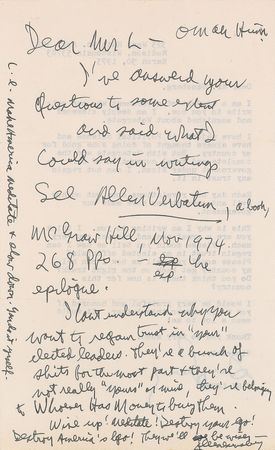 Dear Mr L —
I've answered your
Questions to some extent
and said what I
Could say in writings
See Allen Verbatim, a book,
McGraw Hill, Nov 1974
268 pps. — the
epilogue.
I don't understand why you
want to regain trust in "your"
elected leaders. They're a bunch of
shits for the most part & they're
not really "yours" or mine, they're belonging
to Whoever Has Money to buy them.
Wise up! Meditate! Destroy your ego!
Destroy America's Ego! They we'll be wiser —
i.e. Make America meditate & slow down. Yourself.